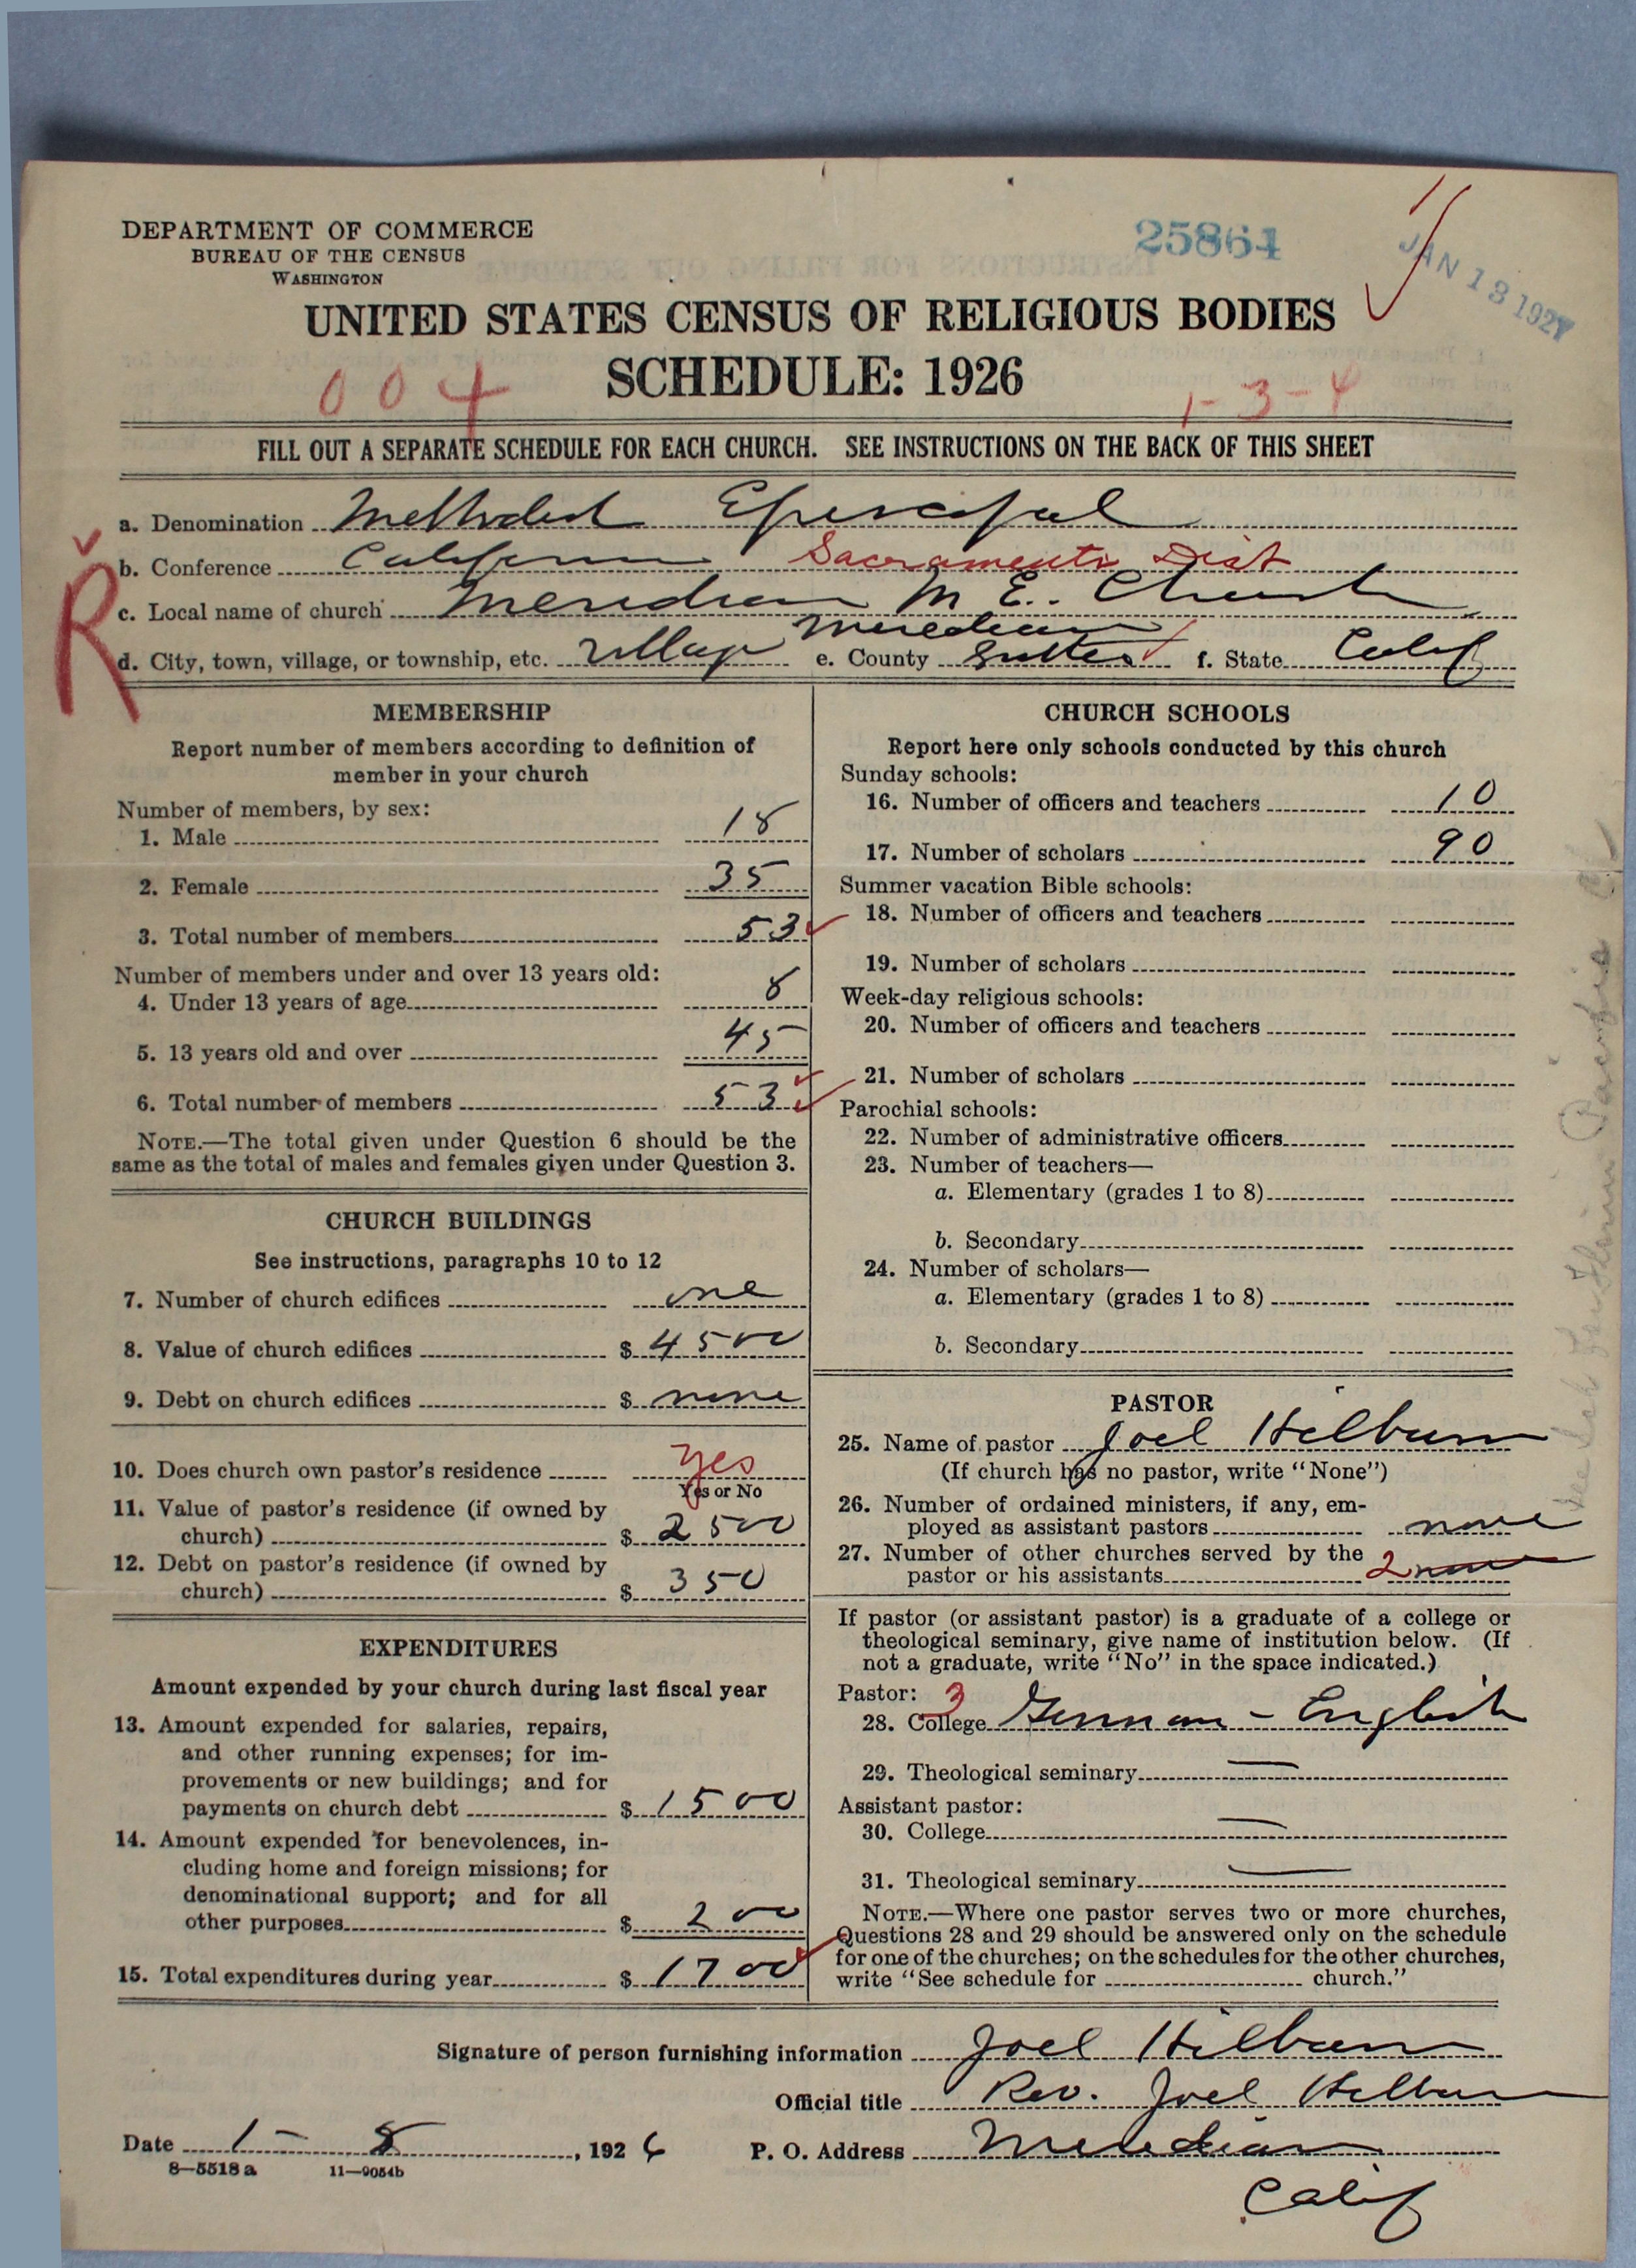 DEPARTMENT OF COMMERCE
BUREAU OF THE CENSUS
WASHINGTON
25864
JAN 13 1927
UNITED STATES CENSUS OF RELIGIOUS BODIES
SCHEDULE: 1926
004
1-3-4
FILL OUT A SEPARATE SCHEDULE FOR EACH CHURCH. SEE INSTRUCTIONS ON THE BACK OF THIS SHEET
a. Denomination Methodist Episcopal
b. Conference California Sacramento Dist
R
c. Local name of church Meridian M E. Church
Meredian
d. City, town, village, or township, etc. village e. County Sutter f. State Calif
MEMBERSHIP
Report number of members according to definition of
member in your church
Number of members, by sex:
1. Male 18
2. Female 35
3. Total number of members 53
Number of members under and over 13 years old:
4. Under 13 years of age 8
5. 13 years old and over 45
6. Total number of members 53
NOTE.—The total given under Question 6 should be the
same as the total of males and females given under Question 3.
CHURCH BUILDINGS
See instructions, paragraphs 10 to 12
7. Number of church edifices one
8. Value of church edifices $ 4500
9. Debt on church edifices $ none
10. Does church own pastor's residence yes
Yes or No
11. Value of pastor's residence (if owned by
church) $ 2500
12. Debt on pastor's residence (if owned by
church) $ 350
EXPENDITURES
Amount expended by your church during last fiscal year
13. Amount expended for salaries, repairs,
and other running expenses; for im-
provements or new buildings; and for
payments on church debt $ 1500
14. Amount expended for benevolences, in-
cluding home and foreign missions; for
denominational support; and for all
other purposes $ 200
15. Total expenditures during year $ 1700
CHURCH SCHOOLS
Report here only schools conducted by this church
Sunday schools:
16. Number of officers and teachers 10
17. Number of scholars 90
Summer vacation Bible schools:
18. Number of officers and teachers
19. Number of scholars
Week-day religious schools:
20. Number of officers and teachers
21. Number of scholars
Parochial schools:
22. Number of administrative officers
23. Number of teachers—
a. Elementary (grades 1 to 8)
b. Secondary
24. Number of scholars—
a. Elementary (grades 1 to 8)
b. Secondary
PASTOR
25. Name of pastor Joel Hilburn
(If church has no pastor, write "None")
26. Number of ordained ministers, if any, em-
ployed as assistant pastors none
27. Number of other churches served by the
pastor or his assistants 2 none
If pastor (or assistant pastor) is a graduate of a college or
theological seminary, give name of institution below. (If
not a graduate, write "No" in the space indicated.)
Pastor: 3
28. College German - English
29. Theological seminary —
Assistant pastor:
30. College —
31. Theological seminary —
NOTE.—Where one pastor serves two or more churches,
Questions 28 and 29 should be answered only on the schedule
for one of the churches; on the schedules for the other churches,
write "See schedule for church."
Signature of person furnishing information Joel Hilburn
Official title Rev. Joel Hilburn
Date 1 - 8, 1926 P. O. Address Meredian
Calif
8—5518 a 11—9054b